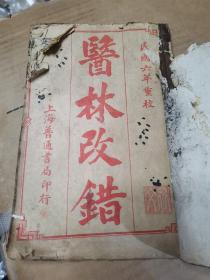 民國六年重校
醫林改錯
上海普通書局印行